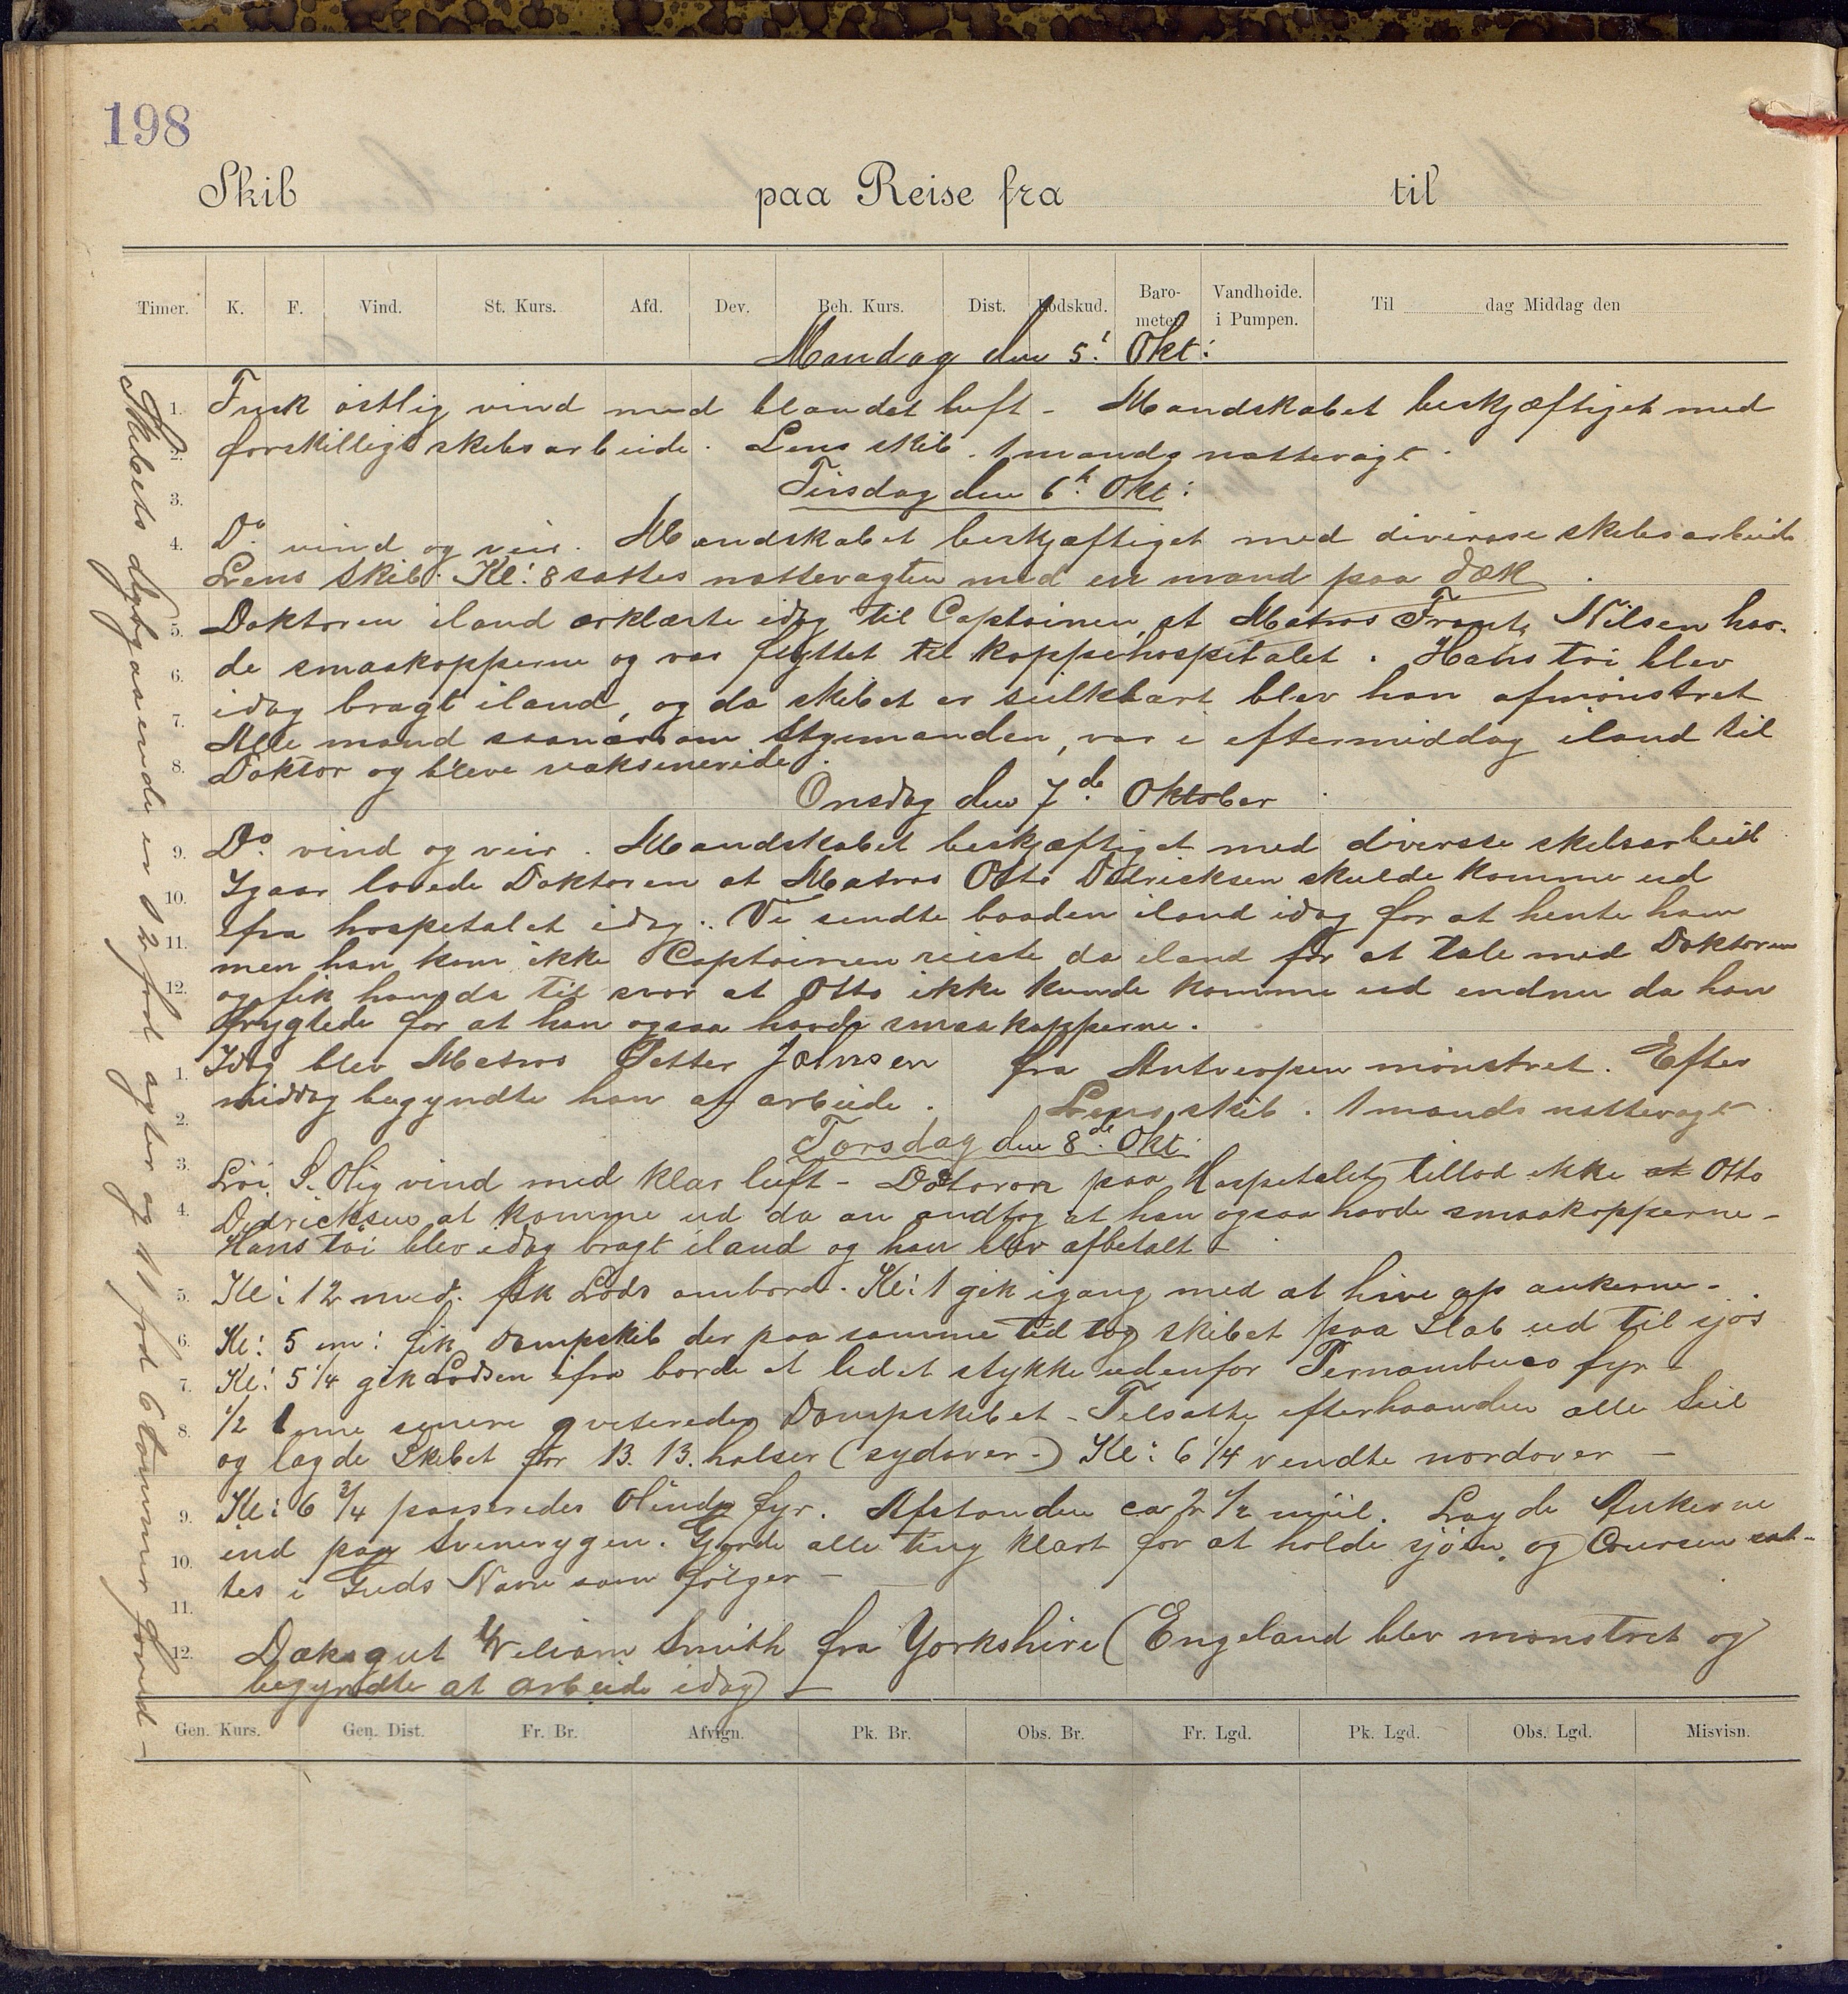 198
Skib paa Reise fra til
Timer. K. F. Vind. St. Kurs. Afd. Dev. Beh. Kurs. Dist. Lodskud. Baro-meter Vandhoide. i Pumpen. Til dag Middag den
Mandag den 5! Okt:
Frisk østlig vind med blandet luft - Mandskabet beskjæftiget med
forskilligt skibsarbeide. Lens skib. 1 mands nattevagt.
Tirsdag den 6te Okt:
Do vind og veir. Mandskabet beskjæftiget med diverse skibsarbeide
Lens skib. Kl: 8 sattes nattevagten med en mand paa dæk.
Doktoren iland ærklærte idag til Captainen, at Matros Frantz Nilsen hav-
de smaakopperne og var flyttet til koppehospitalet. Hans tøi blev
idag bragt iland, og da skibet er seilklart blev han afmønstret
Alle mand saanærsom Stymanden, var i eftermiddag iland til
Doktor og bleve vaksenerede.
Onsdag den 7de Oktober
Do vind og veir. Mandskabet beskjæftiget med diversse skibsarbeid
Igaar lovede Doktoren at Matros Otto Didricksen skulde komme ud
fra hospetalet idag. Vi sendte baaden iland idag for at hente ham
men han kom ikke Captainen reiste da iland for at tale med Doktoren
og fik han da til svar at Otto ikke kunde komme ud endnu da han
frygtede for at han ogsaa havde smaakopperne.
Idag blev Matros Petter Johnsen fra Antverpen mønstret. Efter
middag begyndte han at arbeide. Lens skib. 1 mands nattevagt.
Torsdag den 8de Okt
Løi S. Olig vind med klar luft - Doktoren paa Hospetalet tillod ikke at Otto
Didricksen at komme ud da an andtog at han ogsaa havde smaakopperne -
Hans tøi blev idag bragt iland og han blev afbetalt -
Kl: 12 med. fik Lods ombord. Kl: 1 gik igang med at hive op ankerne -
Kl: 5 em: fik Dampskib der paa samme tid tog skibet paa Slæb ud til sjøs
Kl: 5 1/4 gik Lodsen ifra borde et lidet stykke udenfor Pernambuco fyr -
1/2 time senere qviterede Dampskibet - Tilsatte efterhaanden alle Seil
og lagde Skibet for B.B. halser (sydover -) Kl: 6 1/4 vendte nordover -
Kl: 6 3/4 passeredes Olinda fyr. Afstanden ca 2 1/2 miil. Lagde Ankerne
ind paa Svinerygen. Gjorde alle ting klart for at holde sjøen, og Coursen sat-
tes i Guds Navn som følger -
Dæksgut William Smith fra Yorkshire (Engeland blev mønstret og
begyndte at arbeide idag) -
Skibets dybgaaende er 12 fod agter og 11 fod 6 tommer forud -
1.
2.
3.
4.
5.
6.
7.
8.
9.
10.
11.
12.
1.
2.
3.
4.
5.
6.
7.
8.
9.
10.
11.
12.
Gen. Kurs. Gen. Dist. Fr. Br. Afvign. Pk. Br. Obs. Br. Fr. Lgd. Pk. Lgd. Obs. Lgd. Misvisn.